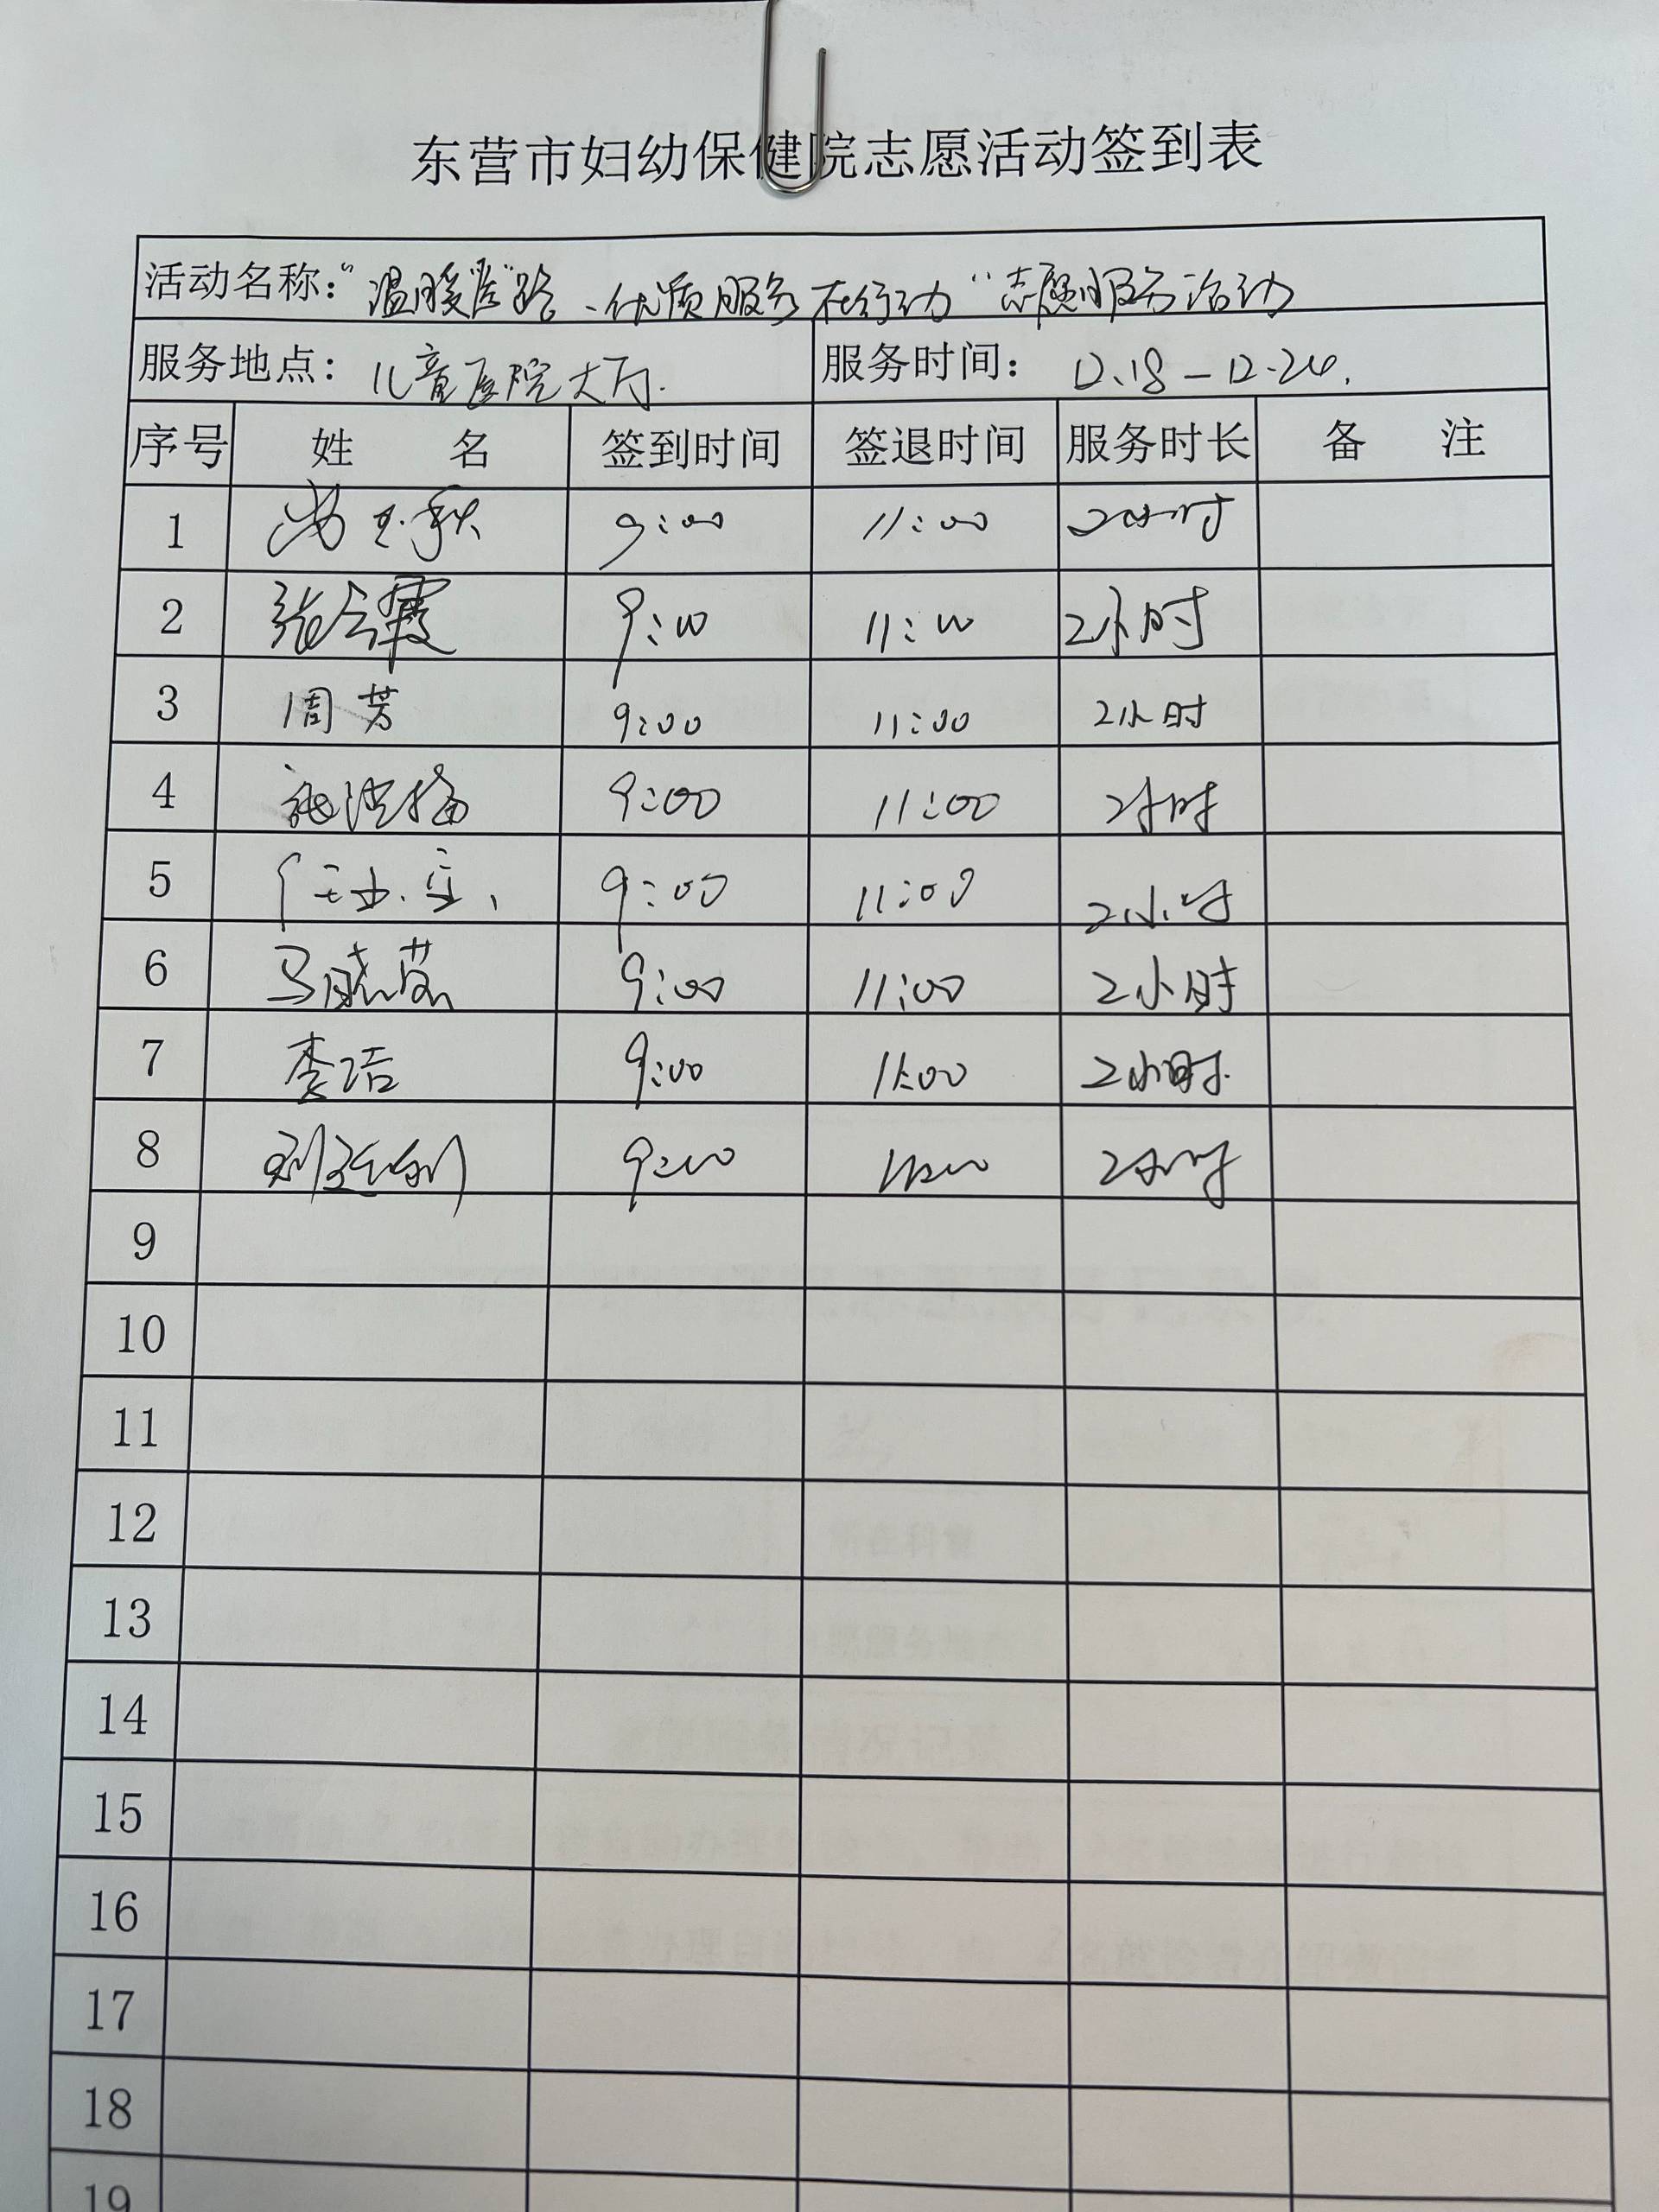 东营市妇幼保健院志愿活动签到表
活动名称:"温暖医路、优质服务在行动"志愿服务活动
服务地点: 儿童医院大厅. 服务时间: 12.18-12.24.
序号 姓 名 签到时间 签退时间 服务时长 备 注
1 秋 9:00 11:00 2小时
2 张 霞 9:00 11:00 2小时
3 周芳 9:00 11:00 2小时
4 9:00 11:00 2小时
5 9:00 11:00 2小时
6 马晓 9:00 11:00 2小时
7 李洁 9:00 11:00 2小时.
8 刘 9:00 11:00 2小时
9
10
11
12
13
14
15
16
17
18
19